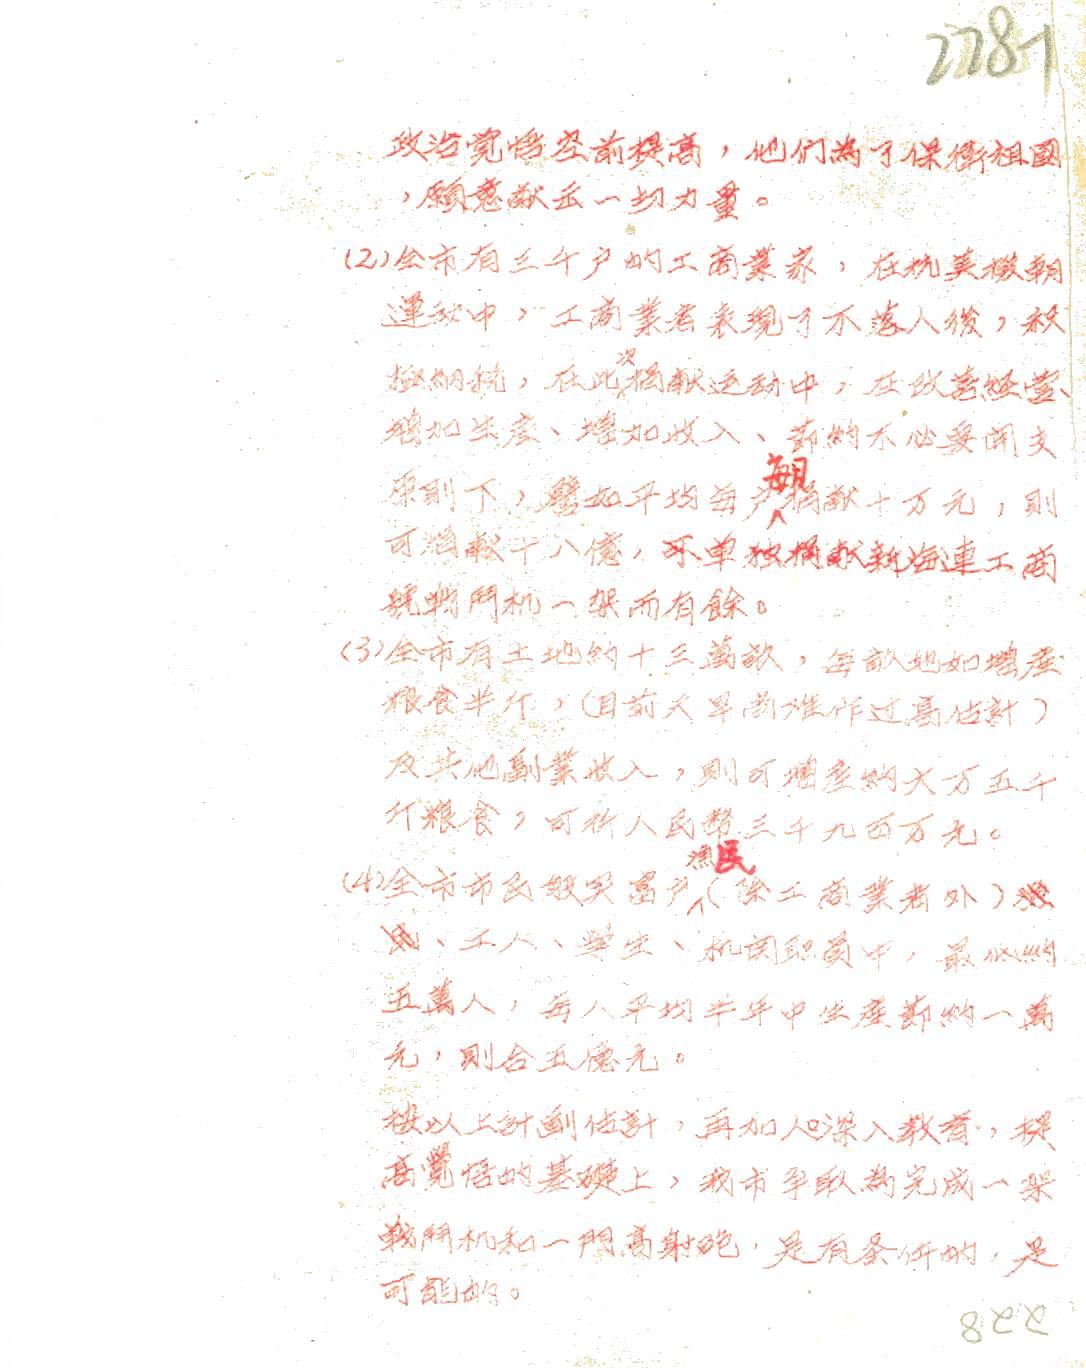 2281
政治覚悟空前提高，他們為了保衛祖國
，願意献出一切力量。
(2)全市有三千户的工商業家，在抗美援朝
運动中，工商業者表現了不落人後，积
极納税，在此次捐献运动中，在改善經营、
增加生産、增加收入、節約不必要開支
原則下，譬如平均每户每月捐献十万元，則
可捐献十八億，不单独捐献新海連工商
號戰鬥机一架而有餘。
(3)全市有土地約十三萬畝，每畝地如增産
粮食半斤，(目前天旱尚难作过高估計)
及其他副業收入，則可增産約六万五千
斤粮食，可折人民幣三千九百万元。
(4)全市市民較突富户漁民(除工商業者外)
、工人、學生、机関职員中，最低約
五萬人，每人平均半年中生産節約一萬
元，則合五億元。
按以上計劃估計，再加以深入教育，提
高覺悟的基礎上，我市争取為完成一架
戰鬥机和一門高射砲，是有条件的，是
可能的。
228